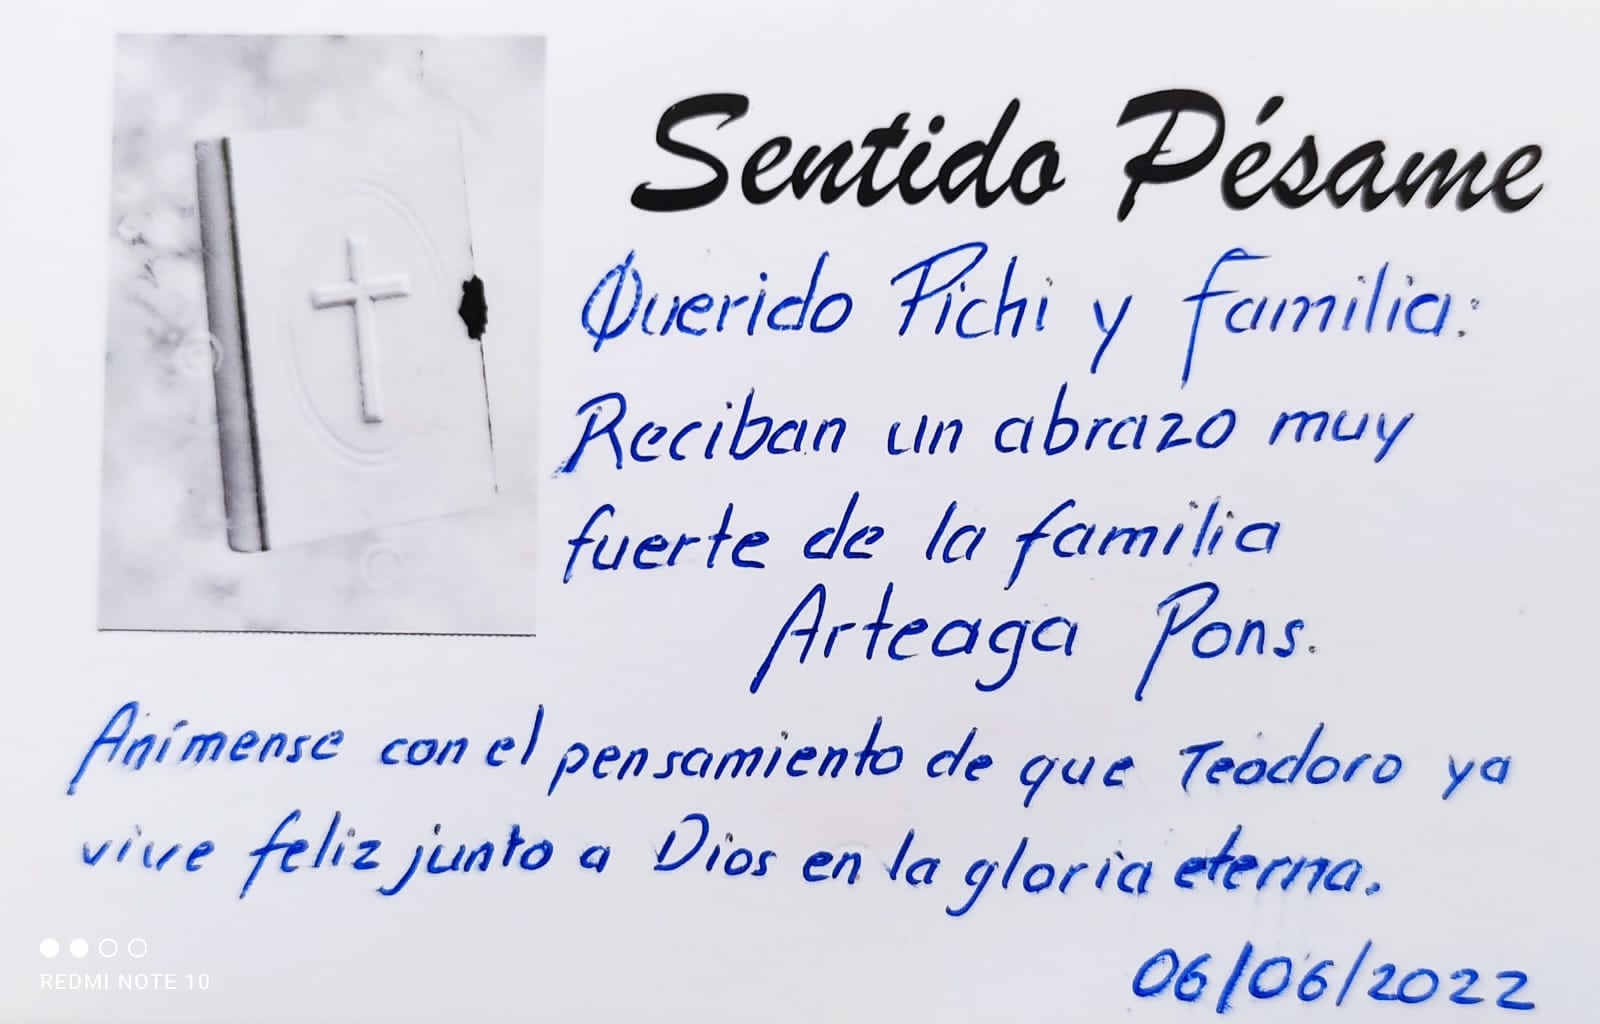 Sentido Pésame
Querido Pichi y familia:
Reciban un abrazo muy
fuerte de la familia
Arteaga Pons.
Anímense con el pensamiento de que Teodoro ya
vive feliz junto a Dios en la gloria eterna.
06/06/2022
REDMI NOTE 10